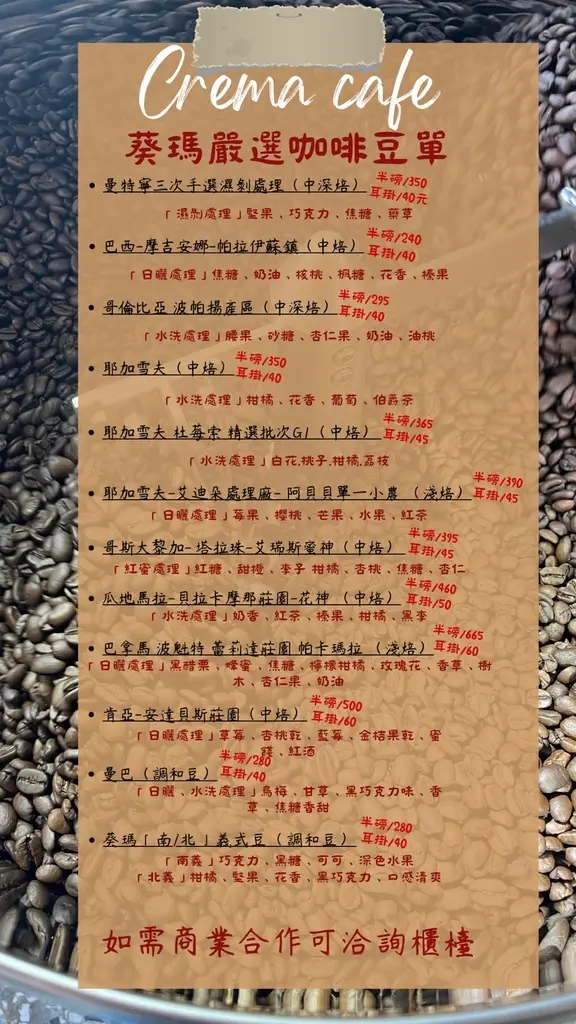 Crema cafe
葵瑪嚴選咖啡豆單
• 曼特寧三次手選濕剝處理（中深焙）半磅/350
耳掛/40元
「濕剝處理」堅果、巧克力、焦糖、藥草
• 巴西-摩吉安娜-帕拉伊蘇鎮（中焙）半磅/240
耳掛/40
「日曬處理」焦糖、奶油、核桃、楓糖、花香、榛果
• 哥倫比亞 波帕揚產區（中深焙）半磅/295
耳掛/40
「水洗處理」腰果、砂糖、杏仁果、奶油、油桃
• 耶加雪夫（中焙）半磅/350
耳掛/40
「水洗處理」柑橘、花香、葡萄、伯爵茶
• 耶加雪夫 杜莓索 精選批次G1（中焙）半磅/365
耳掛/45
「水洗處理」白花.桃子.柑橘.荔枝
• 耶加雪夫-艾迪朵處理廠-阿貝貝單一小農（淺焙）半磅/390
耳掛/45
「日曬處理」莓果、櫻桃、芒果、水果、紅茶
• 哥斯大黎加-塔拉珠-艾瑞斯蜜神（中焙）半磅/395
耳掛/45
「紅蜜處理」紅糖、甜橙、李子 柑橘、杏桃、焦糖、杏仁
• 瓜地馬拉-貝拉卡摩那莊園-花神（中焙）半磅/460
耳掛/50
「水洗處理」奶香、紅茶、榛果、柑橘、黑李
• 巴拿馬 波魁特 蕾莉達莊園 帕卡瑪拉（淺焙）半磅/665
耳掛/60
「日曬處理」黑醋栗、蜂蜜、焦糖、檸檬柑橘、玫瑰花、香草、樹
木、杏仁果、奶油
• 肯亞-安達貝斯莊園（中焙）半磅/500
耳掛/60
「日曬處理」草莓、杏桃乾、藍莓、金桔果乾、蜜
餞、紅酒
• 曼巴（調和豆）半磅/280
耳掛/40
「日曬、水洗處理」烏梅、甘草、黑巧克力味、香
草、焦糖香甜
• 葵瑪「南/北」義式豆（調和豆）半磅/280
耳掛/40
「南義」巧克力、黑糖、可可、深色水果
「北義」柑橘、堅果、花香、黑巧克力、口感清爽
如需商業合作可洽詢櫃檯